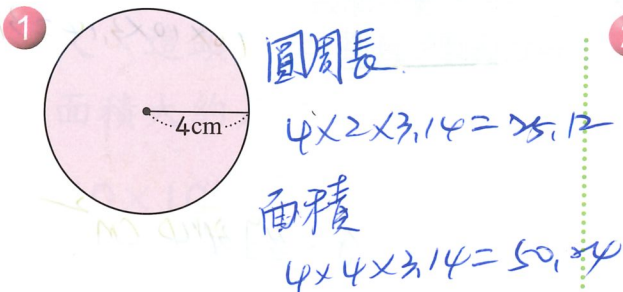 1
4cm
圓周長
4×2×3.14=25.12
面積
4×4×3.14=50.24